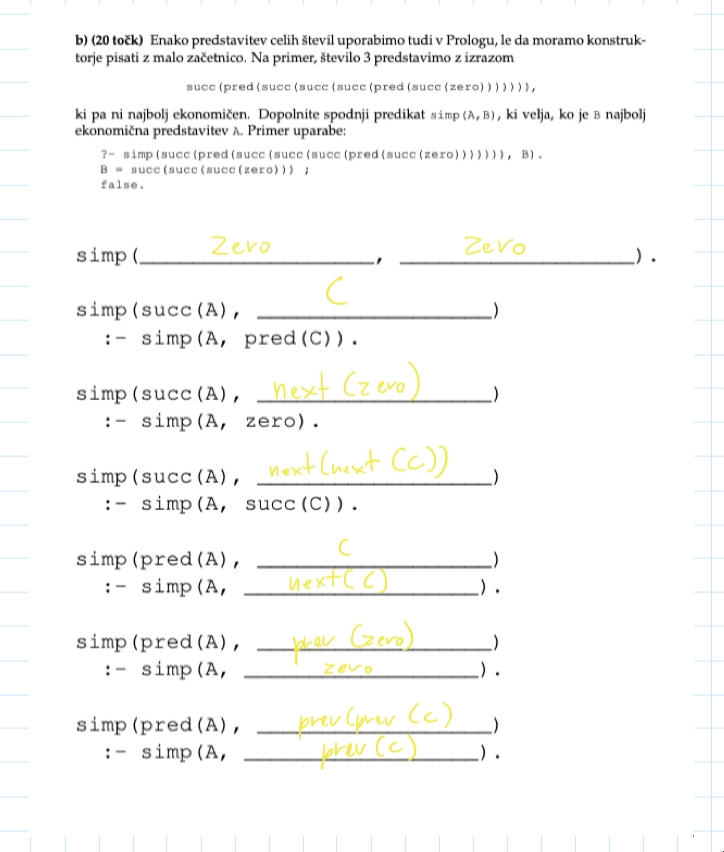 b) (20 točk) Enako predstavitev celih števil uporabimo tudi v Prologu, le da moramo konstruk-
torje pisati z malo začetnico. Na primer, število 3 predstavimo z izrazom
succ(pred(succ(succ(succ(pred(succ(zero))))))),
ki pa ni najbolj ekonomičen. Dopolnite spodnji predikat simp(A,B), ki velja, ko je B najbolj
ekonomična predstavitev A. Primer uporabe:
?- simp(succ(pred(succ(succ(succ(pred(succ(zero))))))), B).
B = succ(succ(succ(zero))) ;
false.
simp(zero, zero).
simp(succ(A), C)
:- simp(A, pred(C)).
simp(succ(A), next(zero))
:- simp(A, zero).
simp(succ(A), next(next(C)))
:- simp(A, succ(C)).
simp(pred(A), C)
:- simp(A, next(C)).
simp(pred(A), prev(zero))
:- simp(A, zero).
simp(pred(A), prev(prev(C))
:- simp(A, prev(C)).